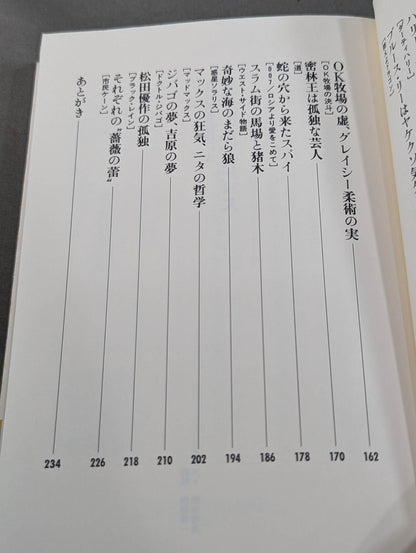 OK牧場の虚、グレイシー柔術の実 162
[OK牧場の決斗]
密林王は孤独な芸人 170
[道]
蛇の穴から来たスパイ 178
[007/ロシアより愛をこめて]
スラム街の馬場と猪木 186
[ウエスト・サイド物語]
奇妙な海のまだら狼 194
[惑星ソラリス]
マックスの狂気、ニタの哲学 202
[マッドマックス]
ジバゴの夢、吉原の夢 210
[ドクトル・ジバゴ]
松田優作の孤独 218
[ブラック・レイン]
それぞれの“薔薇の蕾” 226
[市民ケーン]
あとがき 234